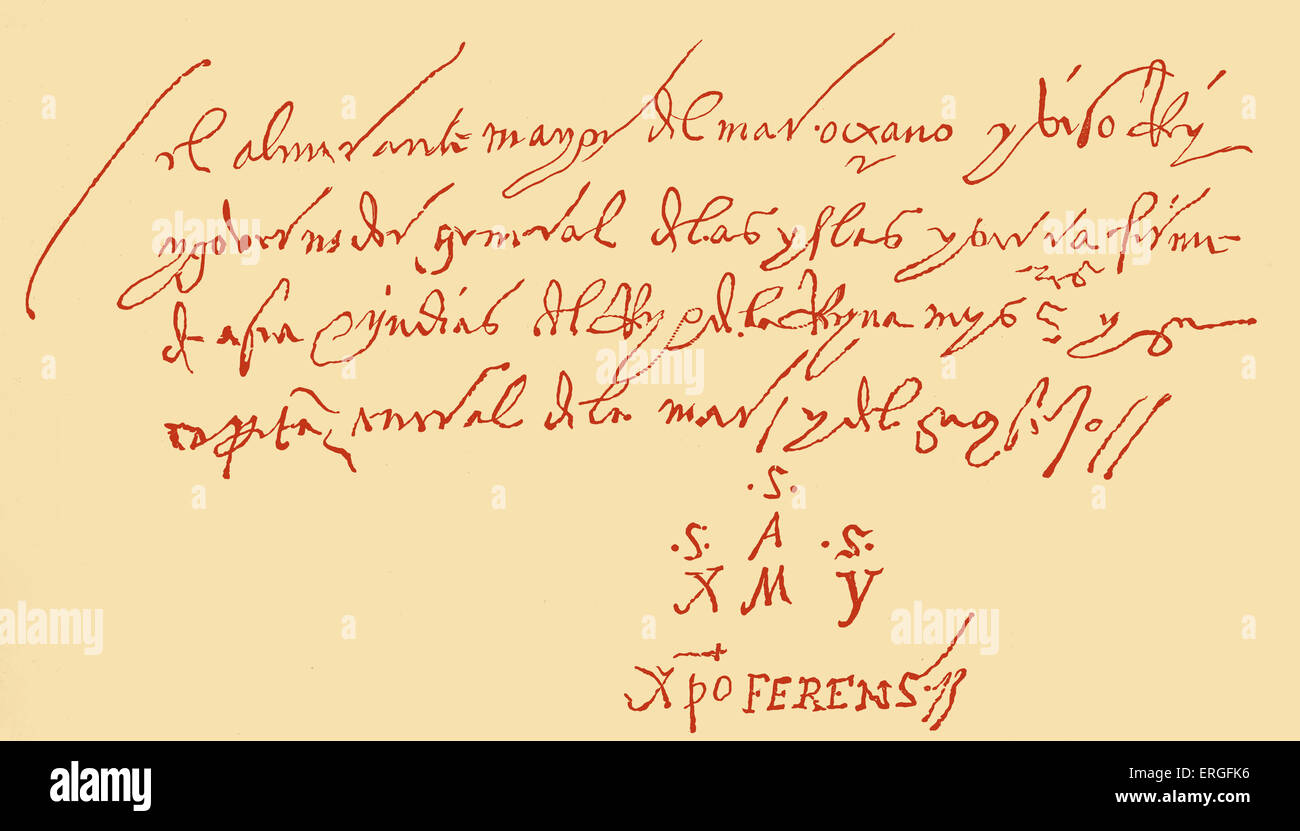 el almirante mayor del mar oçeano y biso Rey
y gobernador general de las yslas y tierra firme
de asia & yndias del Rey & de la Reyna mys S^res y su
capitã general de la mar y del
.S.
.S. A .S.
X M Y
Xp̄o FERENS.//
alamy
a
alamy stock photo
Image ID: ERGFK6
www.alamy.com